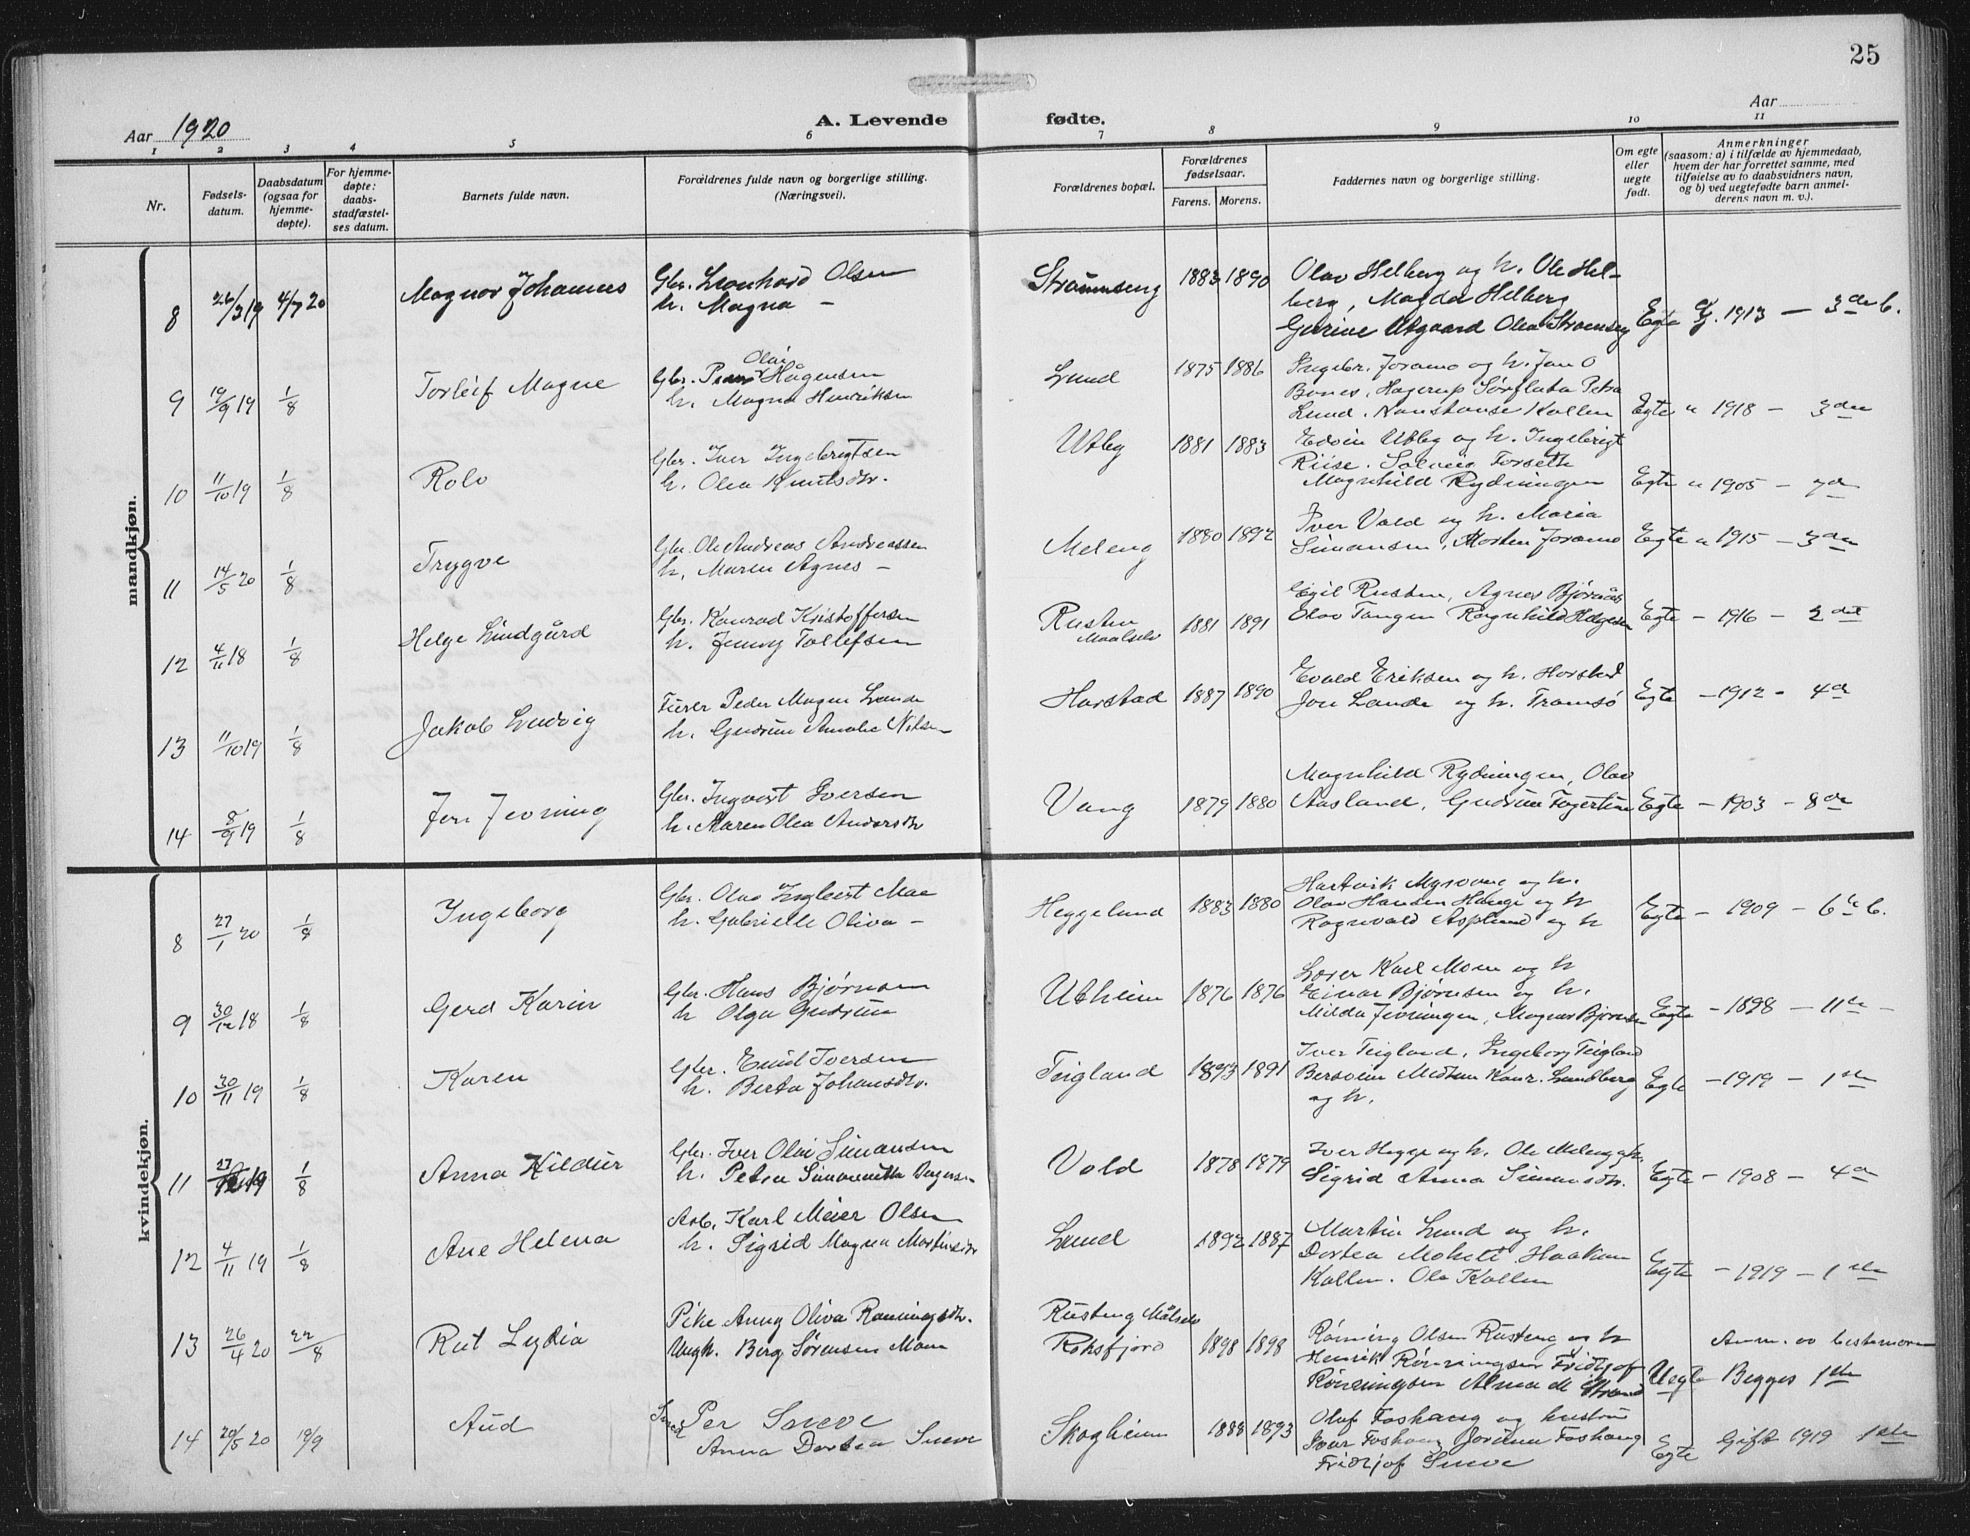 25
Aar 1920
A. Levende fødte.
Aar
1 2 3 4 5 6 7 8 9 10 11
Nr.
Fødsels-
datum.
Daabsdatum
(ogsaa for
hjemme-
døpte).
For hjemme-
døpte:
daabs-
stadfæstel-
ses datum.
Barnets fulde navn.
Forældrenes fulde navn og borgerlige stilling.
(Næringsvei).
Forældrenes bopæl.
Forældrenes
fødselsaar.
Farens. Morens.
Faddernes navn og borgerlige stilling.
Om egte
eller
uegte
født.
Anmerkninger
(saasom: a) i tilfælde av hjemmedaab,
hvem der har forrettet samme, med
tilføielse av to daabsvidners navn,
og b) ved uegtefødte barn anmel-
derens navn m. v.).
mandkjøn.
8 26/3 19 4/7 20 Magnor Johannes
Gbr. Leonhard Olsen
h. Magna –
Strømseng 1883 1890
Olav Helberg og h. Ole Hel-
berg, Magda Helberg
Gurine Utgaard Olea Strømseng
Egte g. 1913 – 3de b.
9 19/9 19 1/8 Torleif Magne
Gbr. Peder Olai Hågensen
h. Magna Henriksen
Lund 1875 1886
Ingebr. Joramo og h. Jan O
Bones, Hagerup Sørflata Petra
Lund. Konstanse Kollen
Egte " 1918 – 3die
10 11/10 19 1/8 Rolv
Gbr. Iver Ingebrigtsen
h. Olea Knutsdtr.
Utby 1881 1883
Edvin Utby og h. Ingebrigt
Riise. Solveig Forseth
Magnhild Rydningen
Egte " 1905 – 7de
11 14/5 20 1/8 Trygve
Gbr. Ole Andreas Andreassen
h. Maren Agnes –
Meleng 1880 1892
Iver Vold og h. Maria
Simonsen, Morten Joramo
Egte " 1915 – 3die
12 4/11 18 1/8 Helge Lindgård
Gbr. Konrad Kristoffersen
h. Jenny Tollefsen
Rusten
Maalselv
1881 1891
Egil Rusten, Agnes Bjørnås
Olav Tangen Ragnhild Hagesen
Egte – 1916 – 2det
13 11/10 19 1/8 Jakob Ludvig
Furer Peder Magnu Lande
h. Gudrun Amalie Nilsen
Harstad 1887 1890
Evald Eriksen og h. Harstad
Jon Lande og h. Tromsø
Egte – 1912 – 4de
14 8/9 19 1/8 Jon Jevning
Gbr. Ingvart Iversen
h. Maren Olea Andersdtr
Vang 1879 1880
Magnhild Rydningen, Olav
Aasland, Gudrun Fagertun
Egte – 1903 – 8de
kvindekjøn.
8 27/1 20 1/8 Ingeborg
Gbr. Olav Ingbert Moe
h. Gabrielle Oliva –
Heggelund 1883 1880
Hartvik Mysvang og h.
Olav Hansen Hauge og h
Ragnvald Asplund og h
Egte – 1909 – 6te b.
9 30/12 18 1/8 Gerd Karin
Gbr. Hans Bjørnsen
h Olga Gudrun
Utheim 1876 1876
Lærer Karl Moen og h
Einar Bjørnsen og h.
Milda Jevningen, Magnus Bjørnsen
Egte – 1898 – 11te –
10 30/11 19 1/8 Karen
Gbr. Emil Iversen
h. Berta Johansdtr.
Teigland 1893 1891
Iver Teigland, Ingeborg Teigland
Bersvein Medtun Konr. Lundberg
og h.
Egte – 1919 – 1ste
11 19 1/8 Anna Hildur
Gbr. Iver Olai Simonsen
h. Petra Simonetta
Vold 1878 1879
Iver Hegge og h. Ole Meleng og h.
Sigrid Anna Simonsdtr.
Egte – 1908 – 4de
12 4/11 19 1/8 Ane Helena
Arb. Karl Meier Olsen
h. Sigrid Magna Martinsdtr
Lund 1892 1887
Martin Lund og h.
Dortea Moheli Haakon
Kollen. Ole Kollen
Egte – 1919 – 1ste
13 26/4 20 22/8 Rut Lydia
Pike Anny Oliva Rønningsdtr.
Ungk. Berg Sørensen Moen
Rusteng Målselv
Roksfjord
1898 1898
Rønning Olsen Rusteng og h
Henrik Rønningsen Fridtjof
Rønningsen Alma M Strand
Uegte
Anm. av bestemoren
Begges 1ste
14 20/5 20 19/9 Aud
Smed Per Sneve
Anna Dortea Sneve
Skogheim 1888 1893
Oluf Foshaug og hustru
Ivar Foshaug Jordun Foshaug
Fridtjof Sneve
Egte Gift 1919 1ste